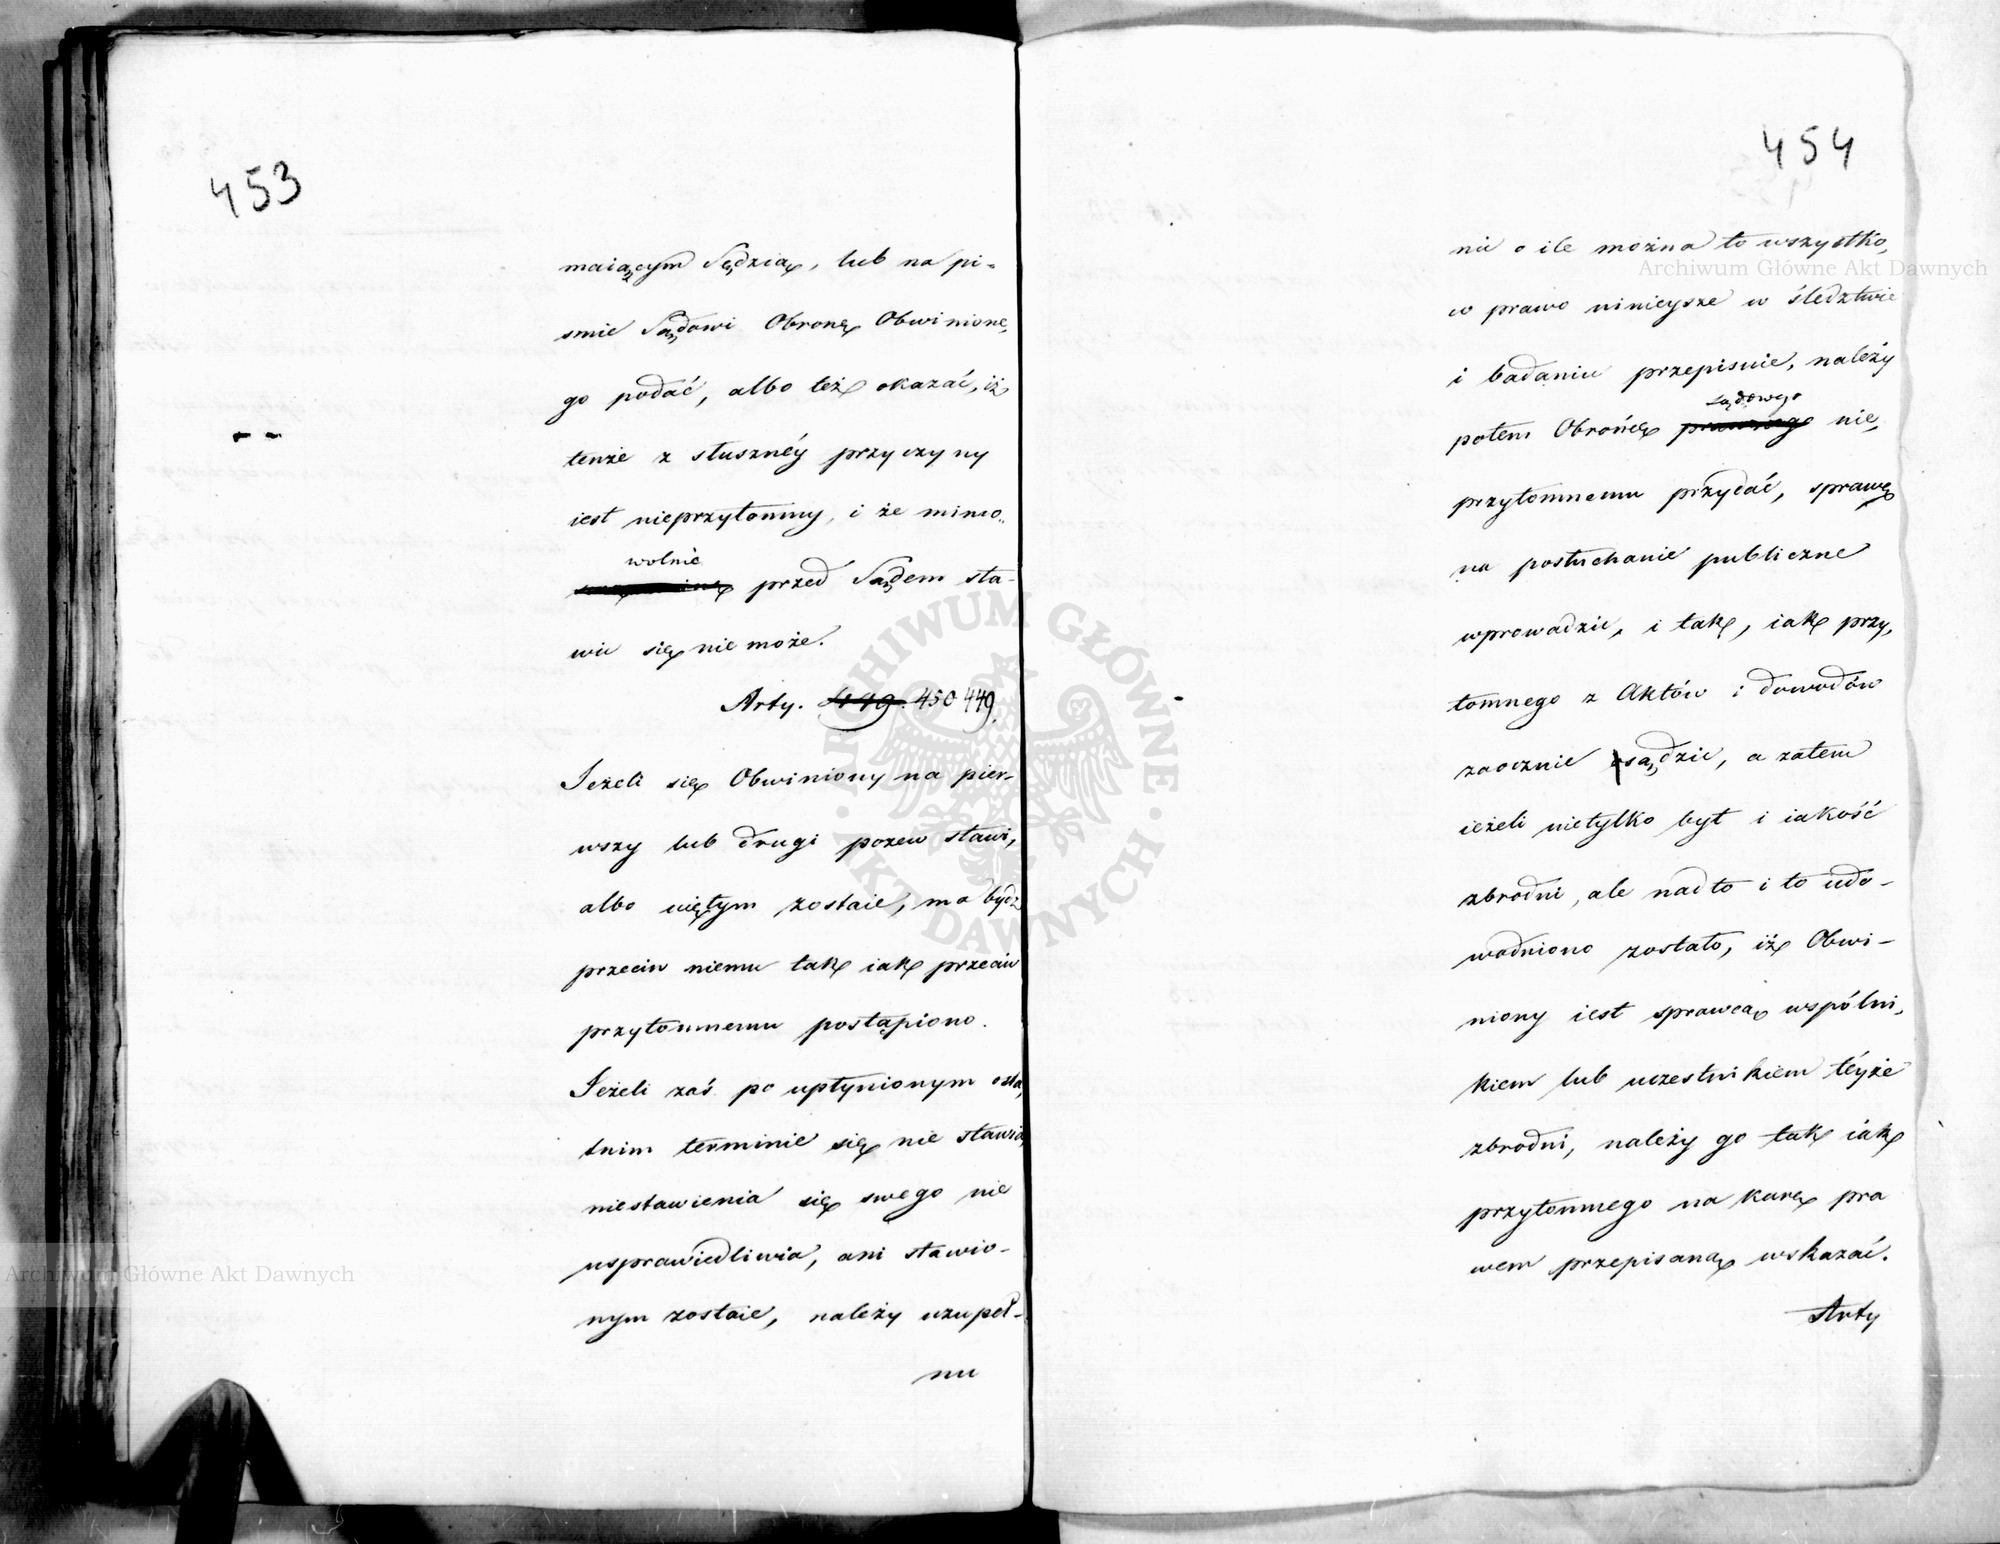 453
maiącym Sędzią, lub na pi-
smie Sądowi Obronę Obwinione,
go podać, albo też okazać, iż
tenże z słusznéy przyczyny
iest nieprzytomny, i że mimo..
wolnie
przed Sądem sta-
wić się nie może.
Arty. 449. 450 449.
Jeżeli się Obwiniony na pier-
wszy lub drugi pozew stawi,
albo uiętym zostaie, ma bydź
przeciw niemu tak iak przeciw
przytomnemu postąpiono.
Jeżeli zaś po upłynionym osta,
tnim terminie się nie stawia,
niestawienia się swego nie
usprawiedliwia, ani stawio-
nym zostaie, należy uzupeł-
nić
454
nić o ile można to wszystko,
co prawo ninieysze w śledztwie
i badaniu przepisuie, należy
sądowego
potem Obrońcę prawnego nie,
przytomnemu przydać, sprawę
na posłuchanie publiczne
wprowadzić, i tak, iak przy,
tomnego z Aktów i dowodów
zaocznie sądzić, a zatem
ieżeli nietylko byt i iakość
zbrodni, ale nadto i to udo-
wodniono zostało, iż Obwi-
niony iest sprawcą wspólni,
kiem lub uczestnikiem téyże
zbrodni, należy go tak iak
przytomnego na karę pra
wem przepisaną wskazać.
Arty
Archiwum Główne Akt Dawnych
Archiwum Główne Akt Dawnych
ARCHIWUM GŁÓWNE · AKT DAWNYCH ·